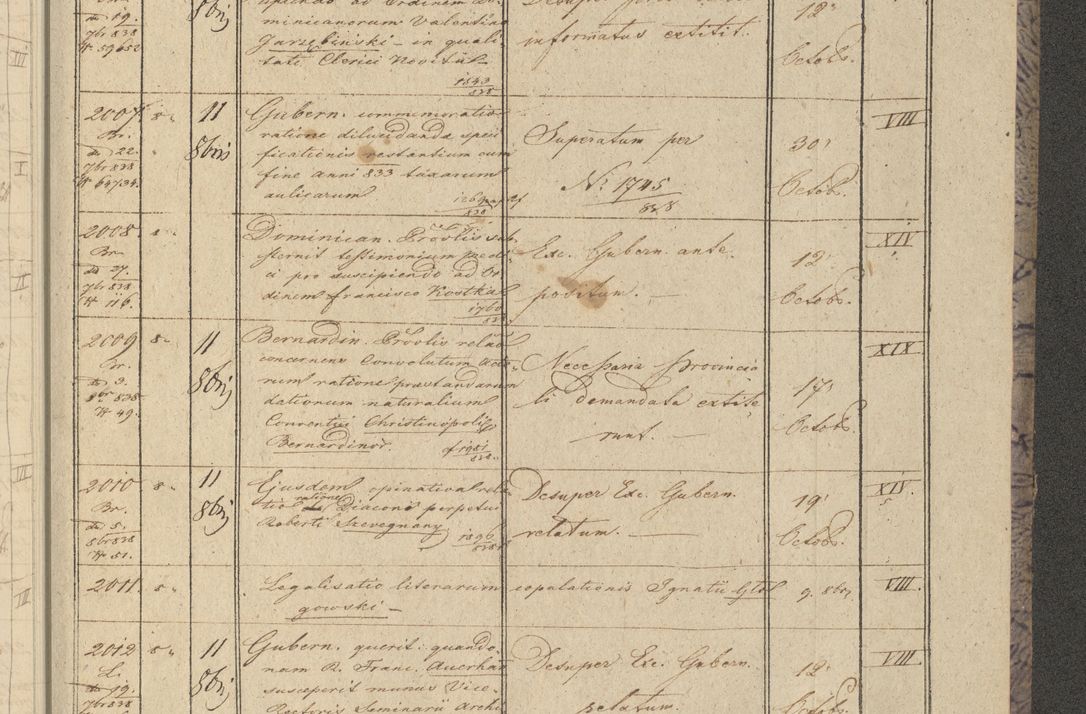 minicanorum Valentino
Jarzębiński – in quali-
tate Clerici Novitii –
1843
838
informatus extitit.
12
Octob.
dd 19.
7br 838
№ 59652
8brij
2007.
Br.
dd 22.
7br 838
№ 64734.
11
8bris
Gubern. commemoratio
ratione dilucidandæ speci
ficationis restantium cum
fine anni 833 taxarum
aulicarum
838
Superatum per
№ 1745
838
30
Octob.
VIII
2008.
Br.
dd 27.
7br 838
№ 116.
Dominican. Provlis sub-
sternit testimonium medi-
ci pro suscipiendo ad Or
dinem Francisco Kostka
1760
838
Exc. Gubern. ante
positum. —
12
Octob.
XIV
2009
Br.
dd 3.
8br 838
№ 49.
11
8brij
Bernardin. Provlis relat
concernens Convolutum Acto-
rum ratione præstandarum
dationum naturalium
Conventui Christinopoli
Bernardinor.
1981
838
Necessaria provincia
li demandata extite
runt. —
17
Octob.
XIX
2010
Br.
dd 5.
8br 838
№ 51.
11
8brij
Ejusdem opinativa rela
tio ratione Diaconi perpetui
Roberti Szevegnany
1896
838
Desuper Exc. Gubern.
relatum. —
19
Octob.
XIV
2011.
Legalisatio literarum copulationis Ignatii Głol
gowski –
9. 8bri
VIII
2012
L.
dd 19.
7br 838
11
8brij
Gubern. querit: quando
nam R. Franc. Auerhan
susceperit munus Vice-
Rectoris Seminarii Archi
Desuper Exc. Gubern.
relatum.
12
Octob.
VIII